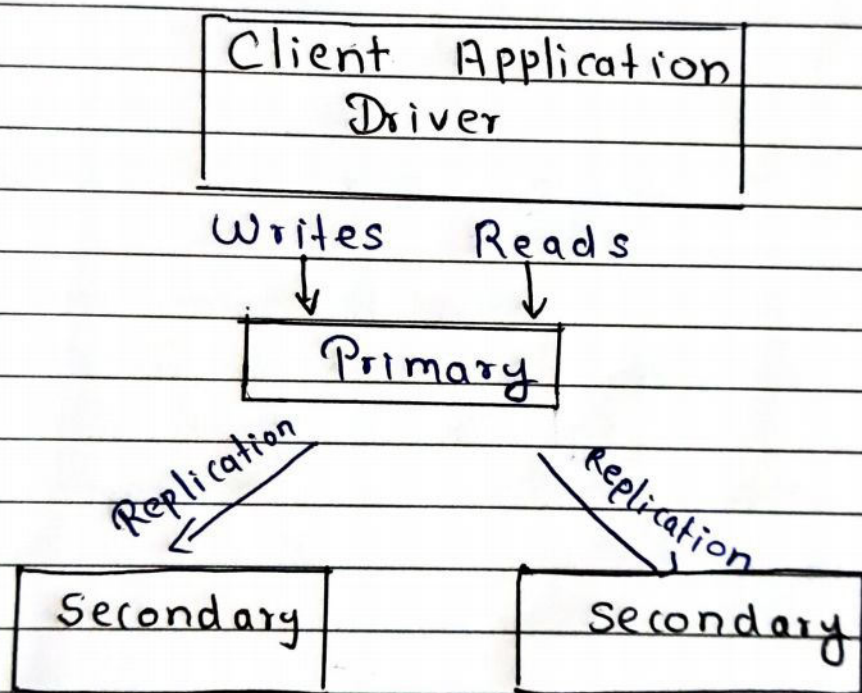 Client Application
Driver
Writes Reads
Primary
Replication Replication
Secondary Secondary